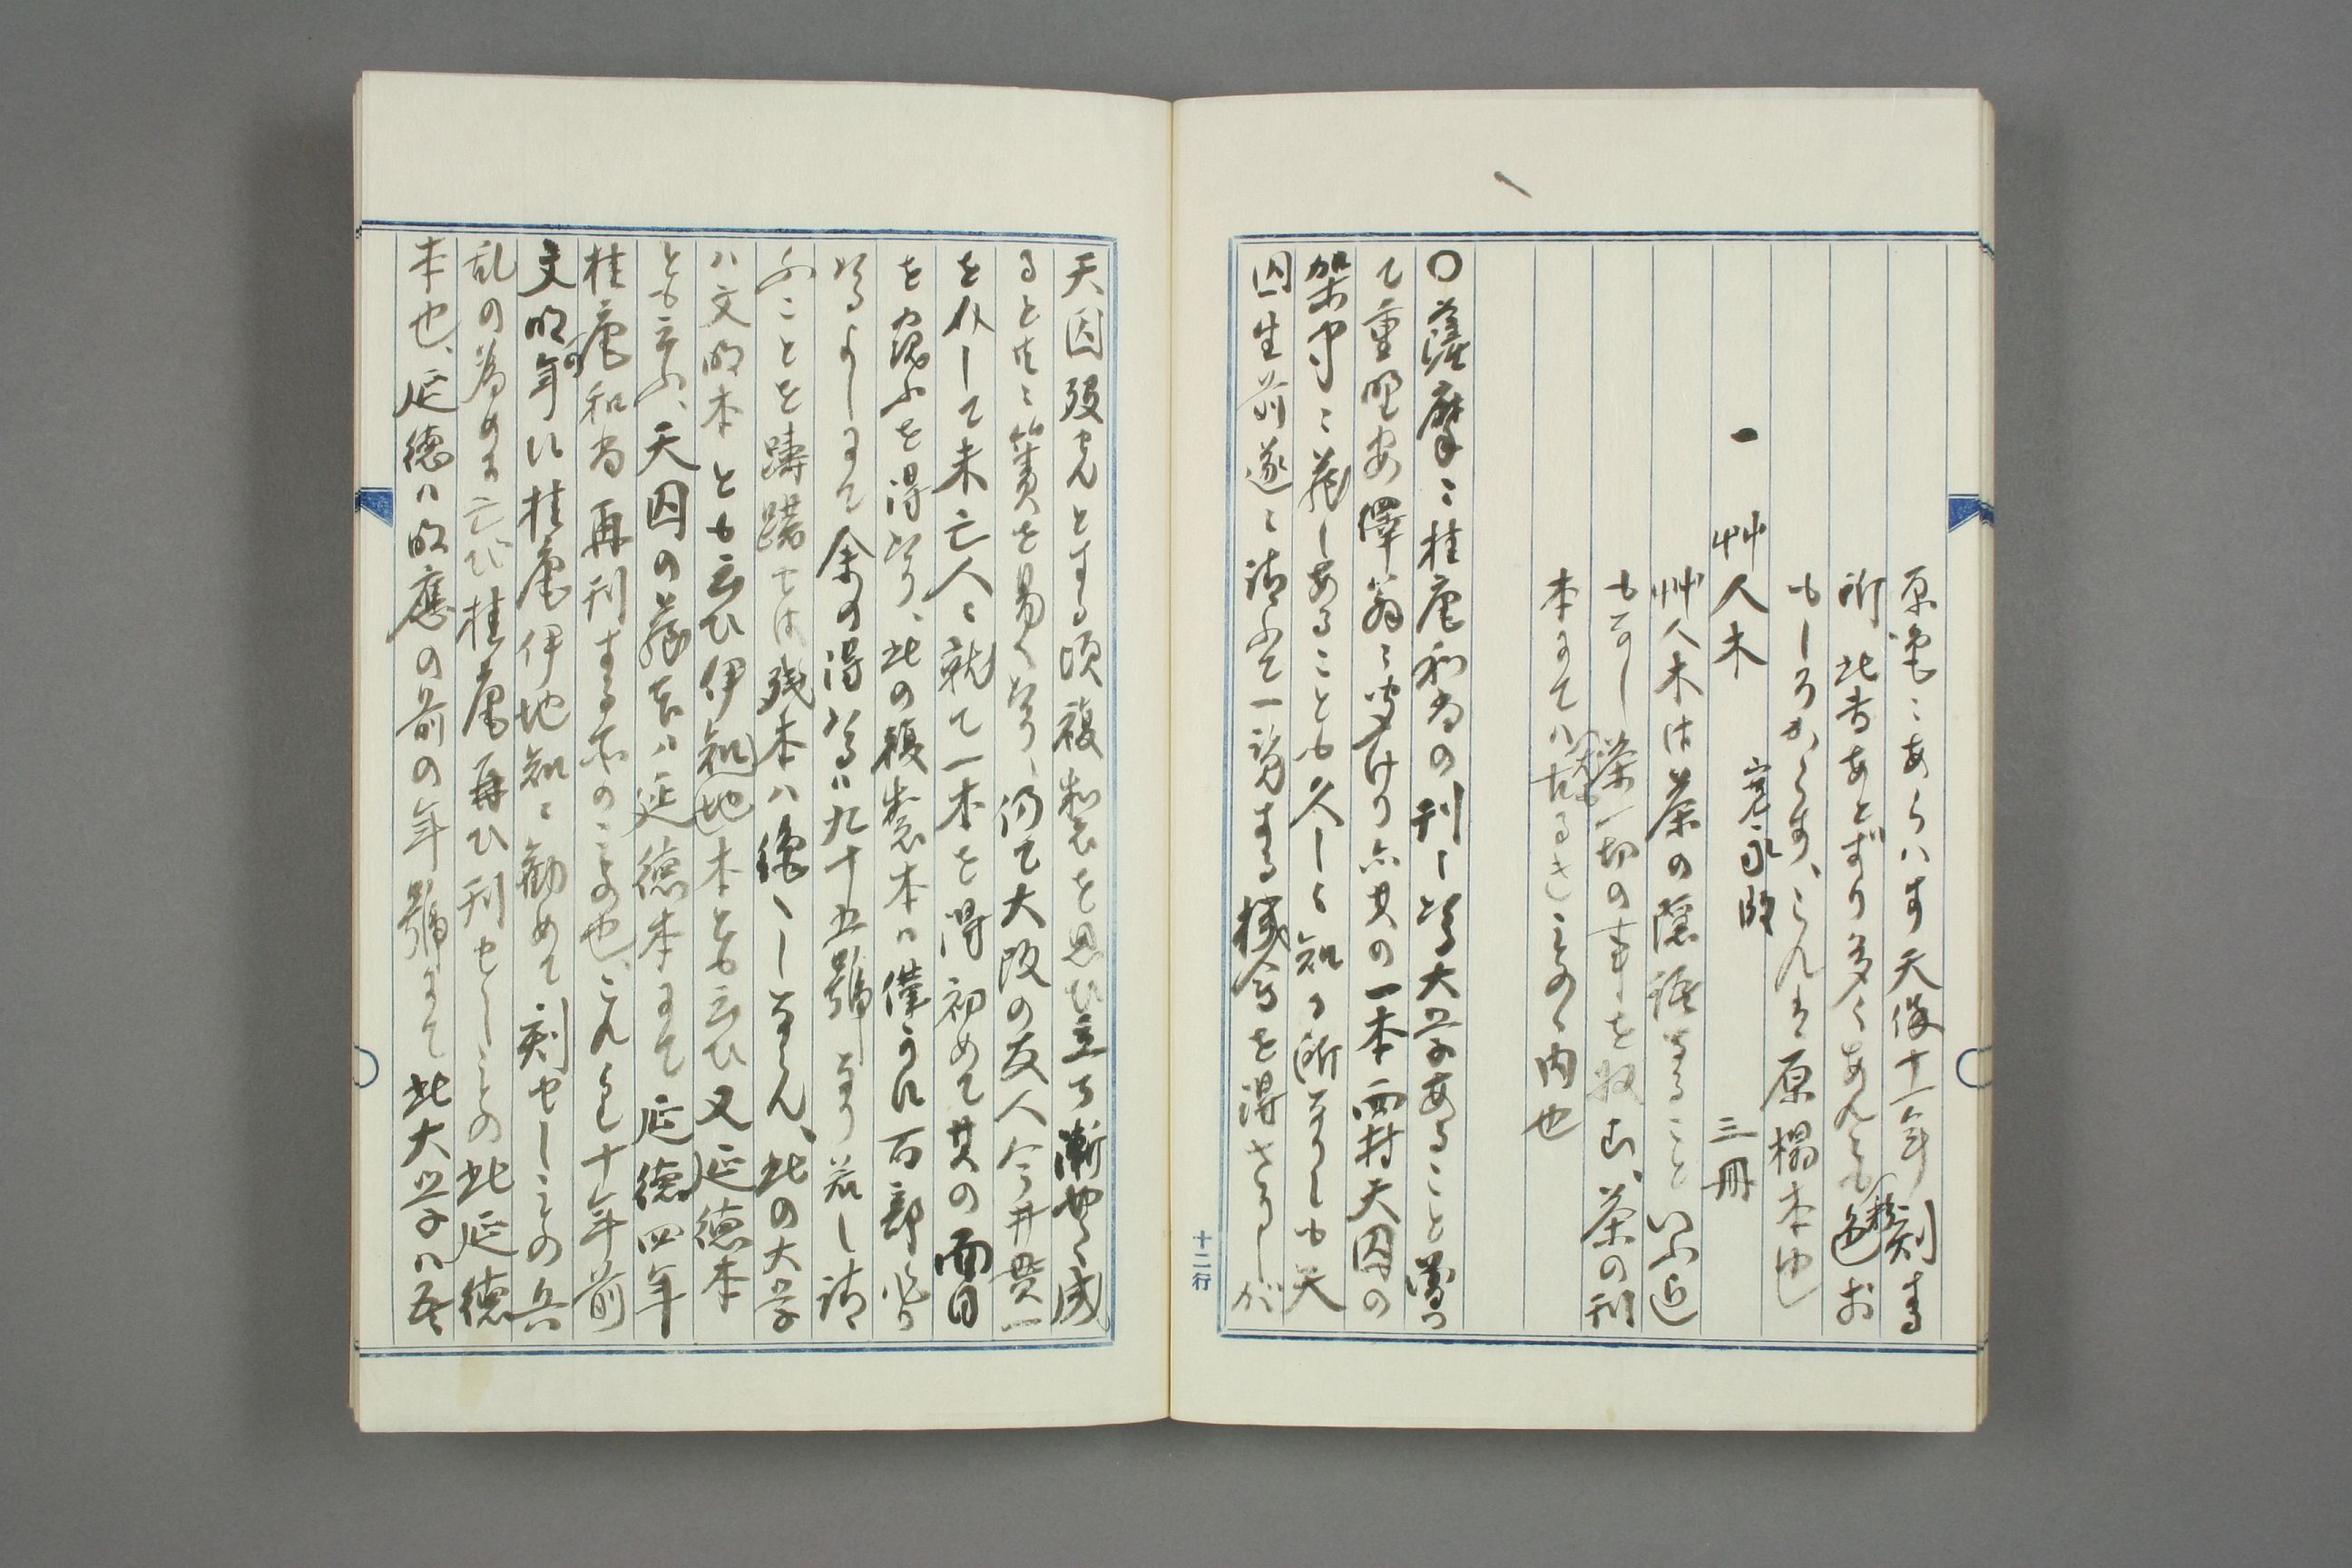 原色ニあらハす天保十一年刻する
所此書あとずり多くあれども色(摺)お
もしろからず、これは原榻本也
一 艸人木 寛永版 三冊
艸人木は茶の隠語なることいふ迄
もなし茶一切の事を叙す、茶の刊
本にてハ古るきものゝ内也
〇薩摩ニ桂庵和尚の刊しゝ大学あること嘗つ
て重野安繹翁ニ聞けり而其の一本西村天囚の
架中ニ蔵しあることも久しく知る所なりしも天
囚生前遂ニ請ふて一覧する機会を得ざりしが
十二行
天囚歿せんとする頃複製を思ひ立ち漸やく成
ると共ニ簀を易へたり、仍て大阪の友人今井貫一
を介して未亡人に就て一本を得初めて其の面目
を窺ふを得たり、此の複製本ハ僅かに百部
たるよしにて余の得たるハ九十五号なり若し請
ふことを躊躇せば残本ハ絶へしならん、此の大学
ハ文明本とも云ひ伊知地本とも云ひ又延徳本
とも云ふ、天囚の蔵本ハ延徳本にて延徳四年
桂庵和尚再刊する所のもの也、これより十年前
文明年の中に桂庵伊地知ニ勧めて刻せしもの兵
乱の為めに亡び桂庵再ひ刊せしもの此延徳
本也、延徳ハ明應の前の年号にて此大学ハ吾